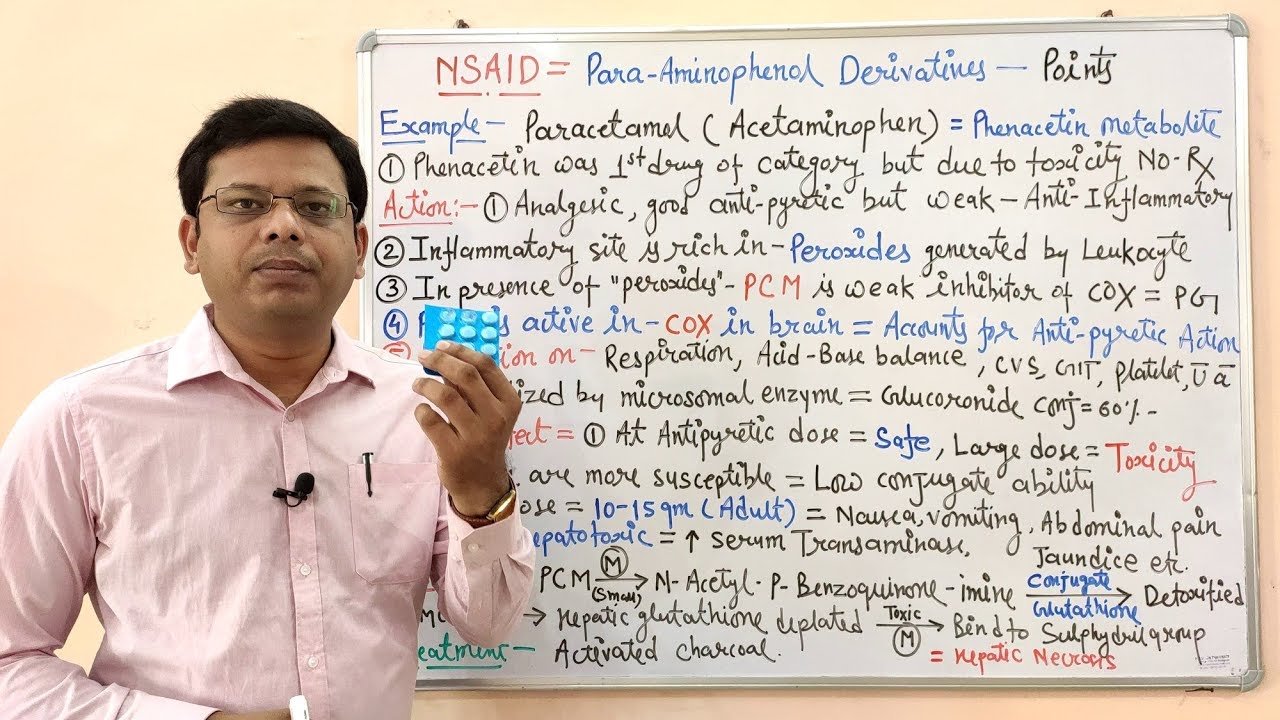 NSAID = Para-Aminophenol Derivatives — Points
Example - Paracetamol (Acetaminophen) = Phenacetin metabolite
① Phenacetin was 1st drug of category but due to toxicity NO-Rx
Action:- ① Analgesic, good anti-pyretic but weak - Anti-Inflammatory
② Inflammatory site is rich in - Peroxides generated by Leukocyte
③ In presence of "peroxides" - PCM is weak inhibitor of COX = PG
④ is active in - COX in brain = Accounts for Anti-pyretic Action
on - Respiration, Acid-Base balance, CVS, GIT, Platelet, U a
by microsomal enzyme = Glucoronide conj = 60% -
= ① At Antipyretic dose = Safe, Large dose = Toxicity
are more susceptible = Low conjugate ability
= 10-15 gm (Adult) = Nausea, vomiting, Abdominal pain
= ↑ Serum Transaminase, Jaundice etc.
PCM (M) (Small) → N-Acetyl-P-Benzoquinone-imine Conjugate Glutathione → Detoxified
→ Hepatic glutathione deplated Toxic (M) → Bind to Sulphydril group
= Hepatic Necrosis
Activated charcoal.